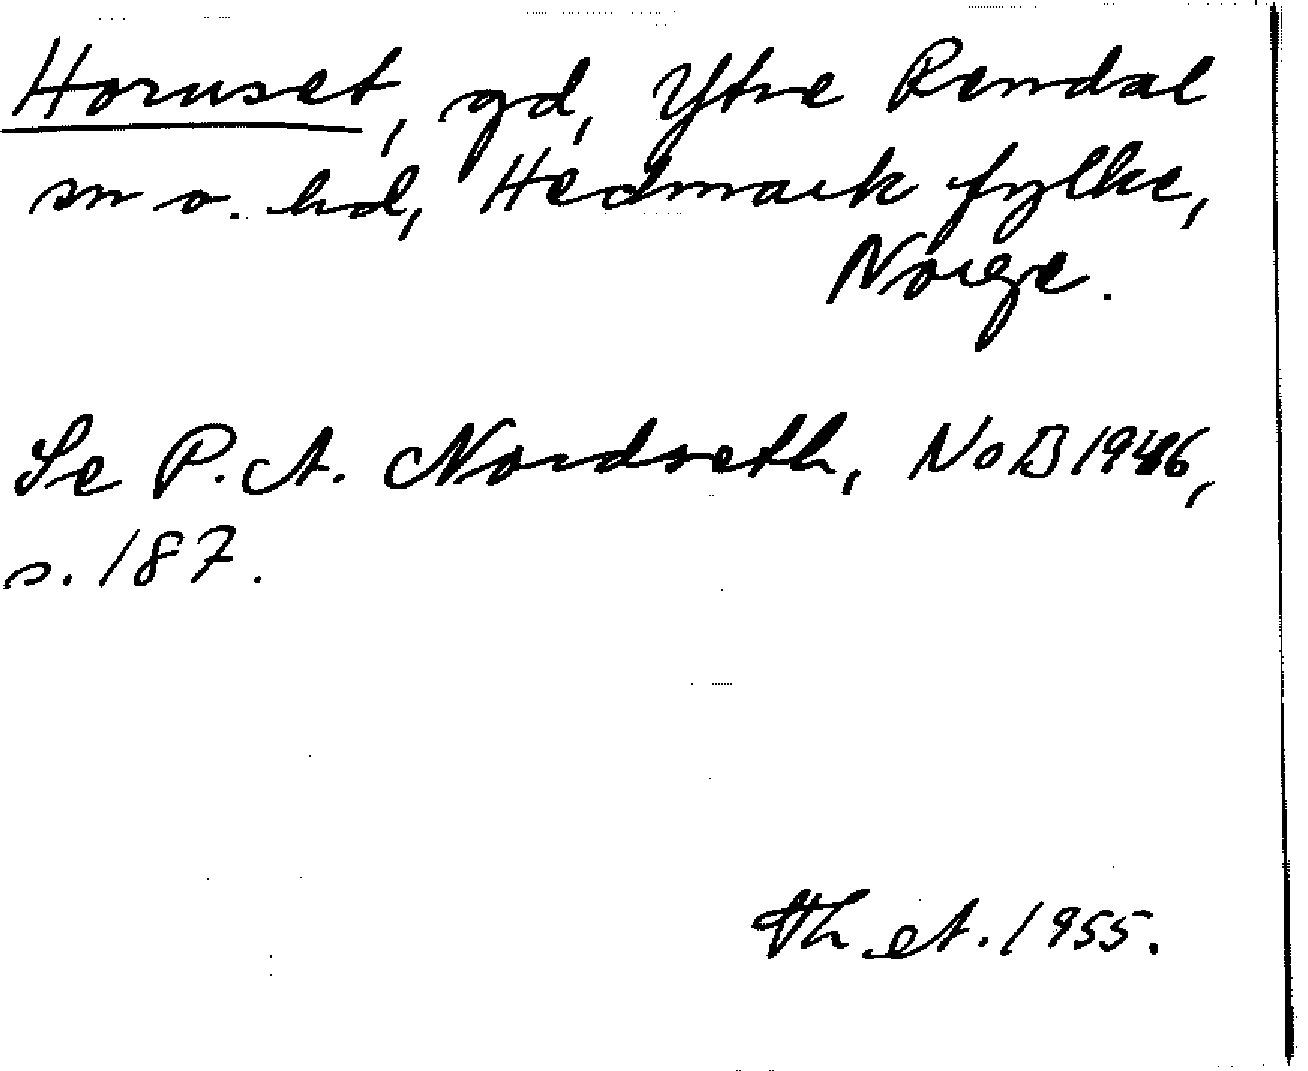 Hornset, gd, Ytre Rendal
sn o. hd, Hedmark fylke,
Norge.
Se P. A. Nordseth, NoB 1946,
s. 187.
Th A. 1955.